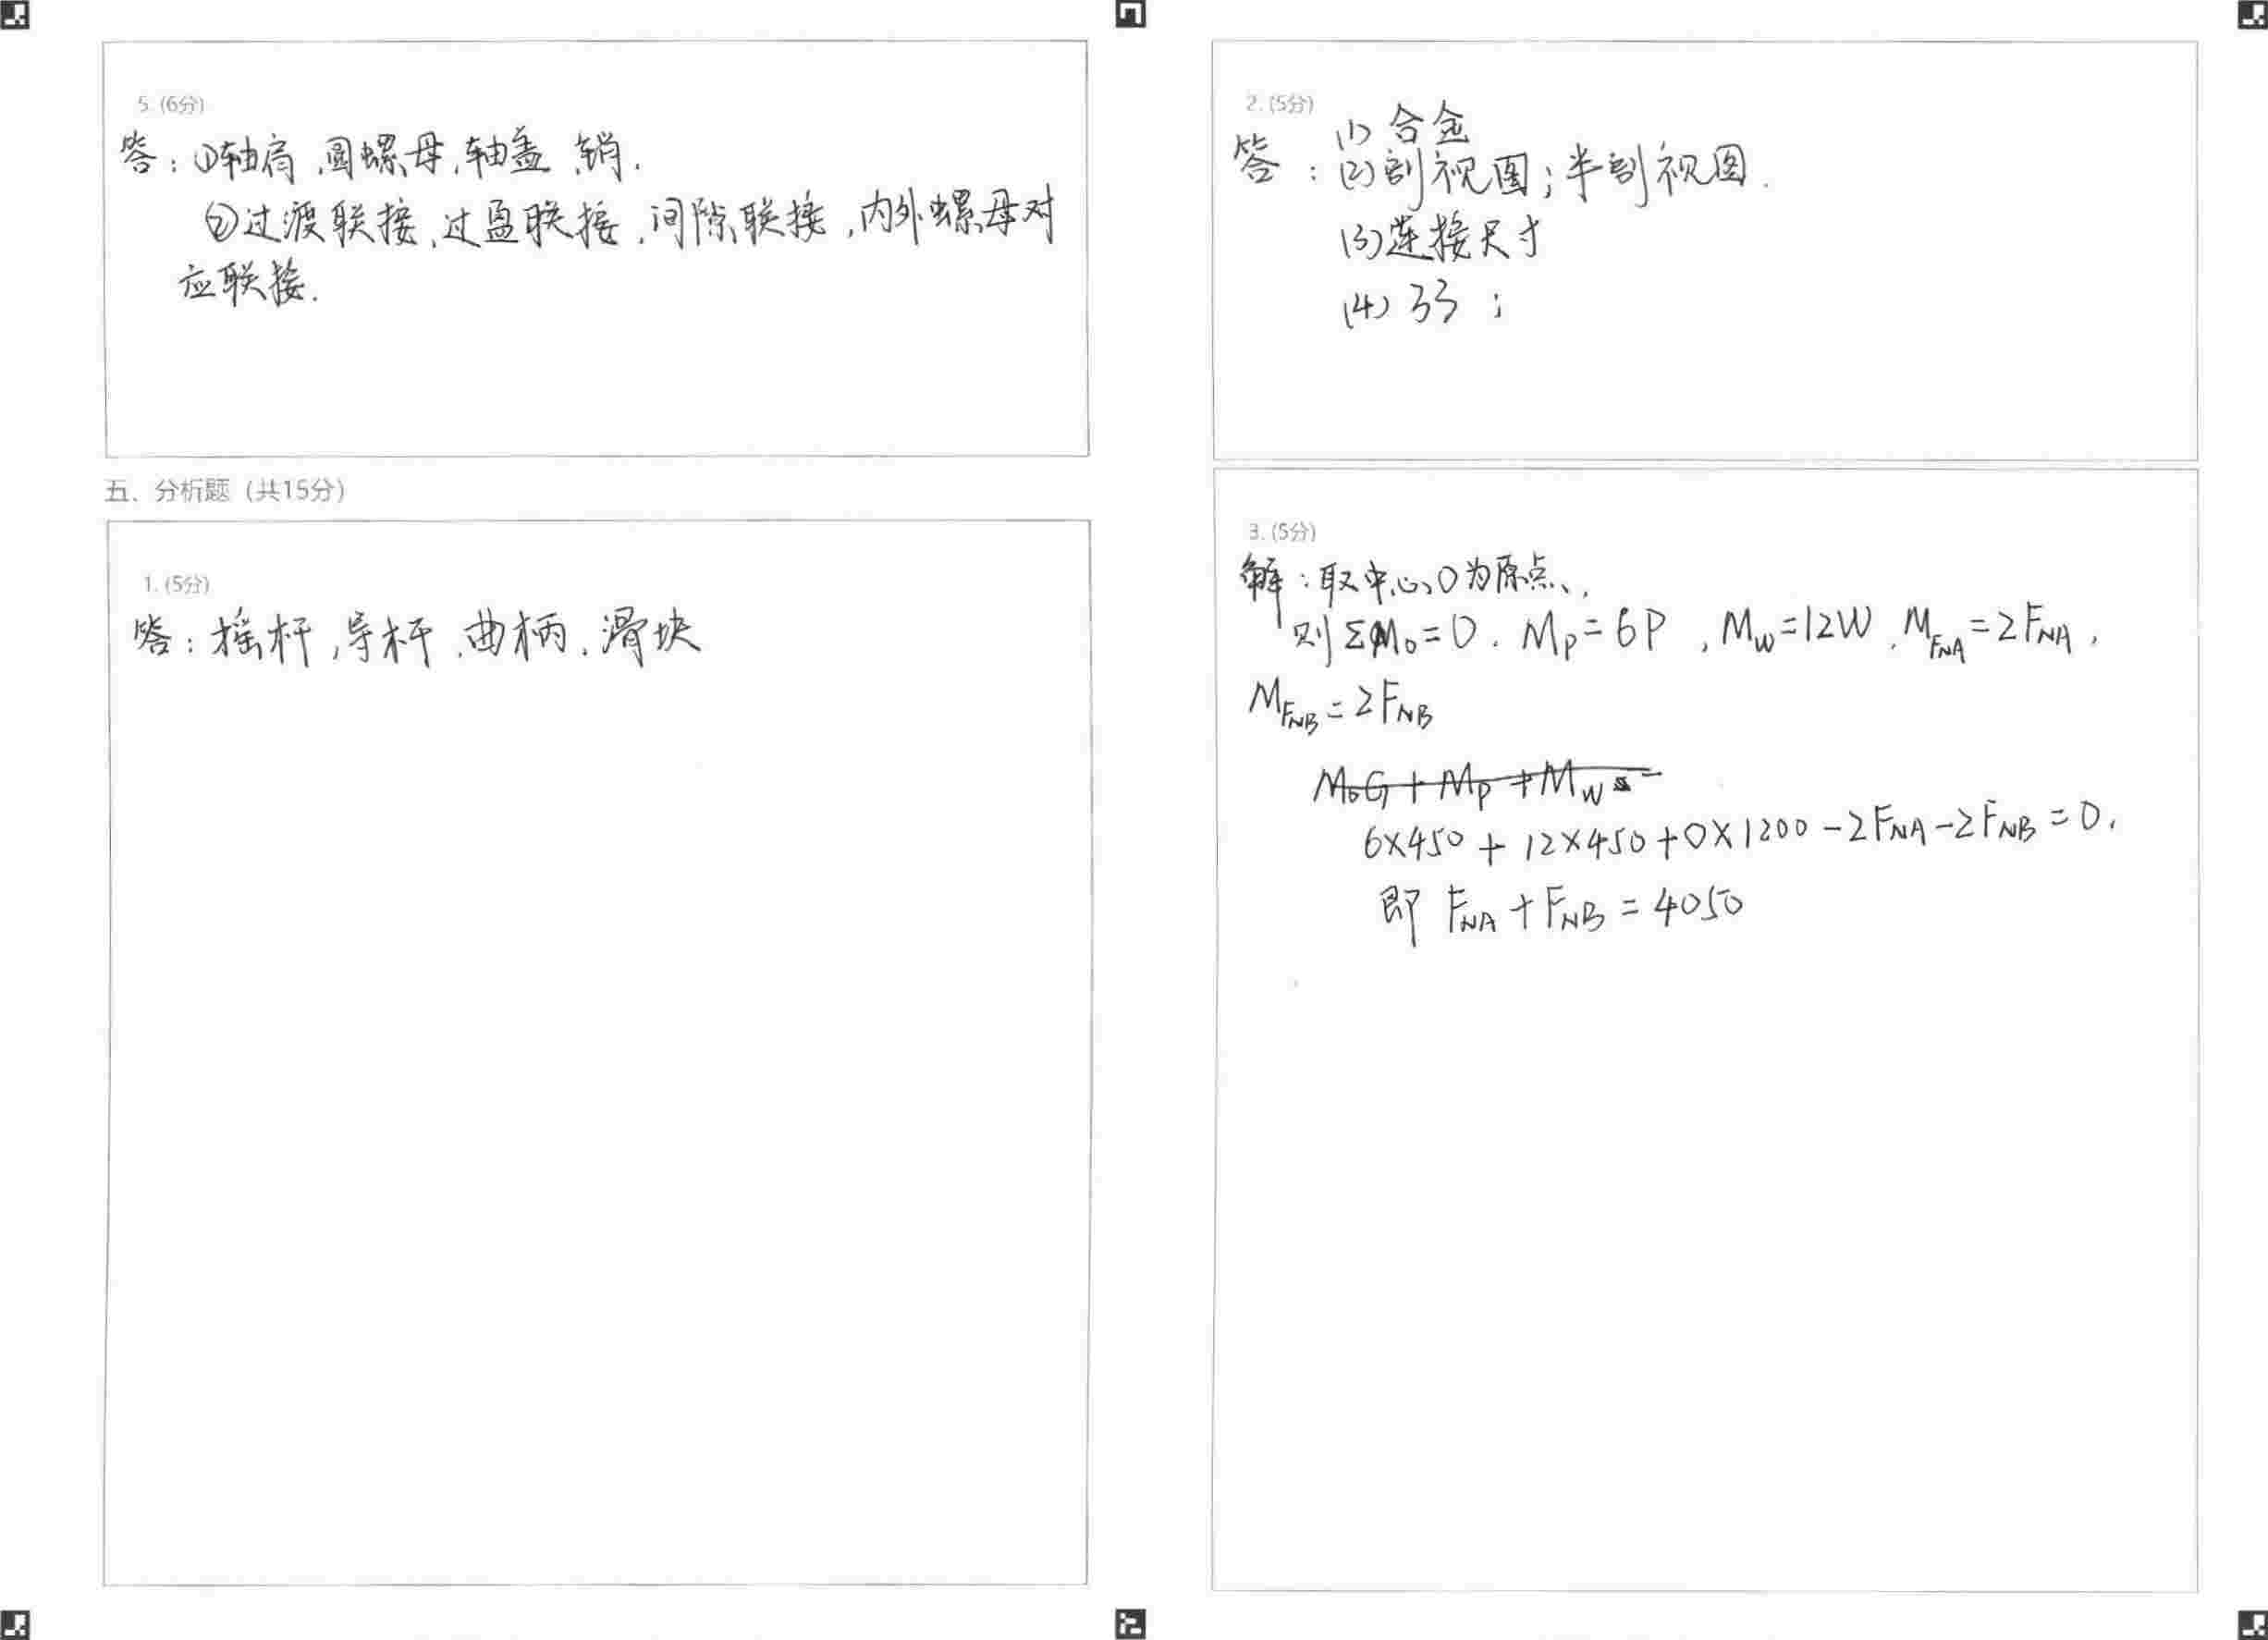 5. (6分)
答：①轴肩，圆螺母，轴盖，销.
②过渡联接，过盈联接，间隙联接，内外螺母对
应联接.
五、分析题（共15分）
1. (5分)
答：摇杆，导杆，曲柄，滑块
2. (5分)
(1) 合金
答：(2)剖视图；半剖视图.
(3)连接尺寸
(4) 33；
3. (5分)
解：取中心O为原点、，
则ΣM₀=0. Mp=6P，Mw=12W，M_FNA=2F_NA，
M_FNB=2F_NB
6×450+12×450+0×1200-2F_NA-2F_NB=0，
即 F_NA+F_NB=4050